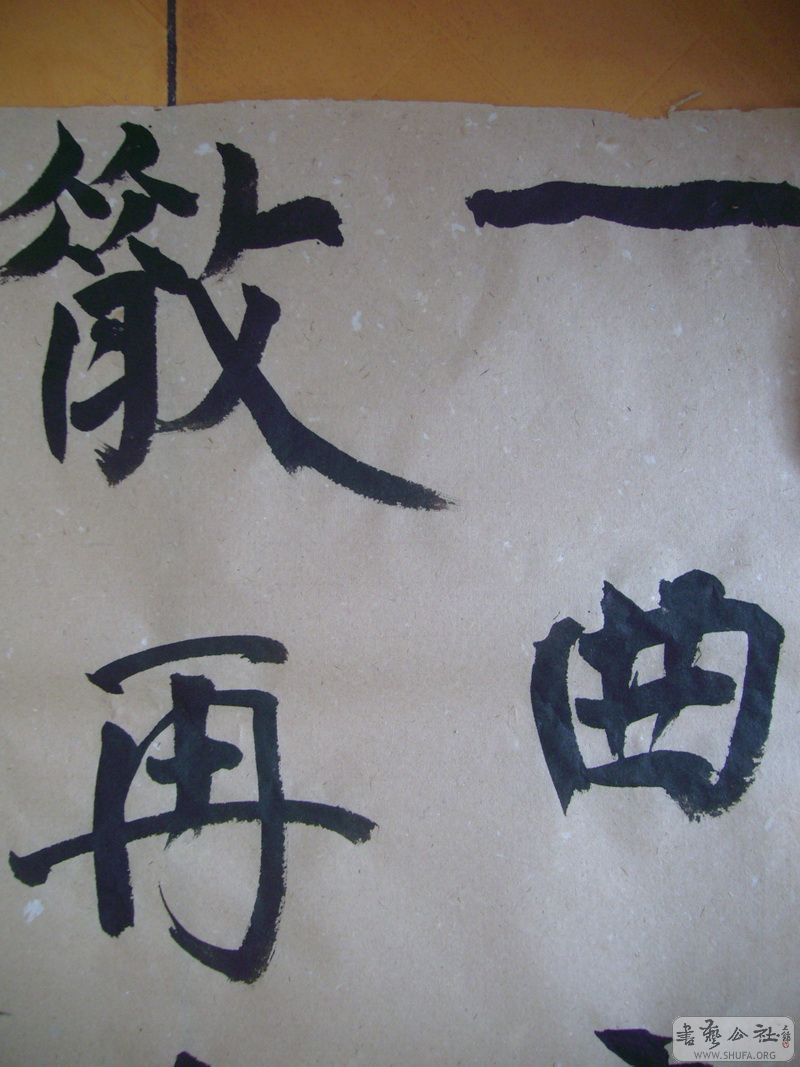 一曲
散再
書藝公社
WWW.SHUFA.ORG